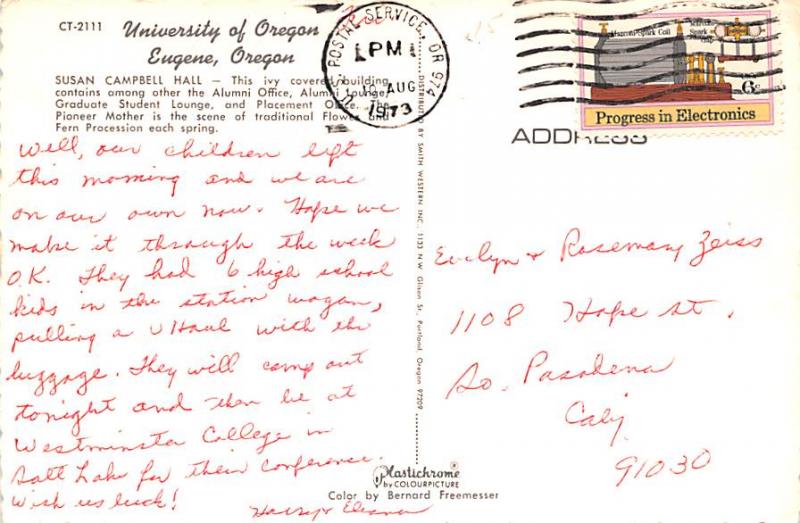 CT-2111
University of Oregon
Eugene, Oregon
SUSAN CAMPBELL HALL — This ivy covered building
contains among other the Alumni Office, Alumni Lounge,
Graduate Student Lounge, and Placement Office. The
Pioneer Mother is the scene of traditional Flower and
Fern Procession each spring.
Well, our children left
this morning and we are
on our own now. Hope we
make it through the week
O.K. They had 6 high school
kids in the station wagon,
pulling a U Haul with the
luggage. They will camp out
tonight and then be at
Westminster College in
Salt Lake for their conference.
Wish us luck!
Harry & Eleanor
DISTRIBUTED BY SMITH WESTERN INC., 1133 N.W. Glisan St., Portland, Oregon 97209
Plastichrome
by COLOURPICTURE
Color by Bernard Freemesser
POSTAL SERVICE, OR 974
PM
10 AUG
1973
6c
Progress in Electronics
ADDRESS
Evelyn & Rosemary Zeiss
1108 Hope St.
So. Pasadena
Calif
91030